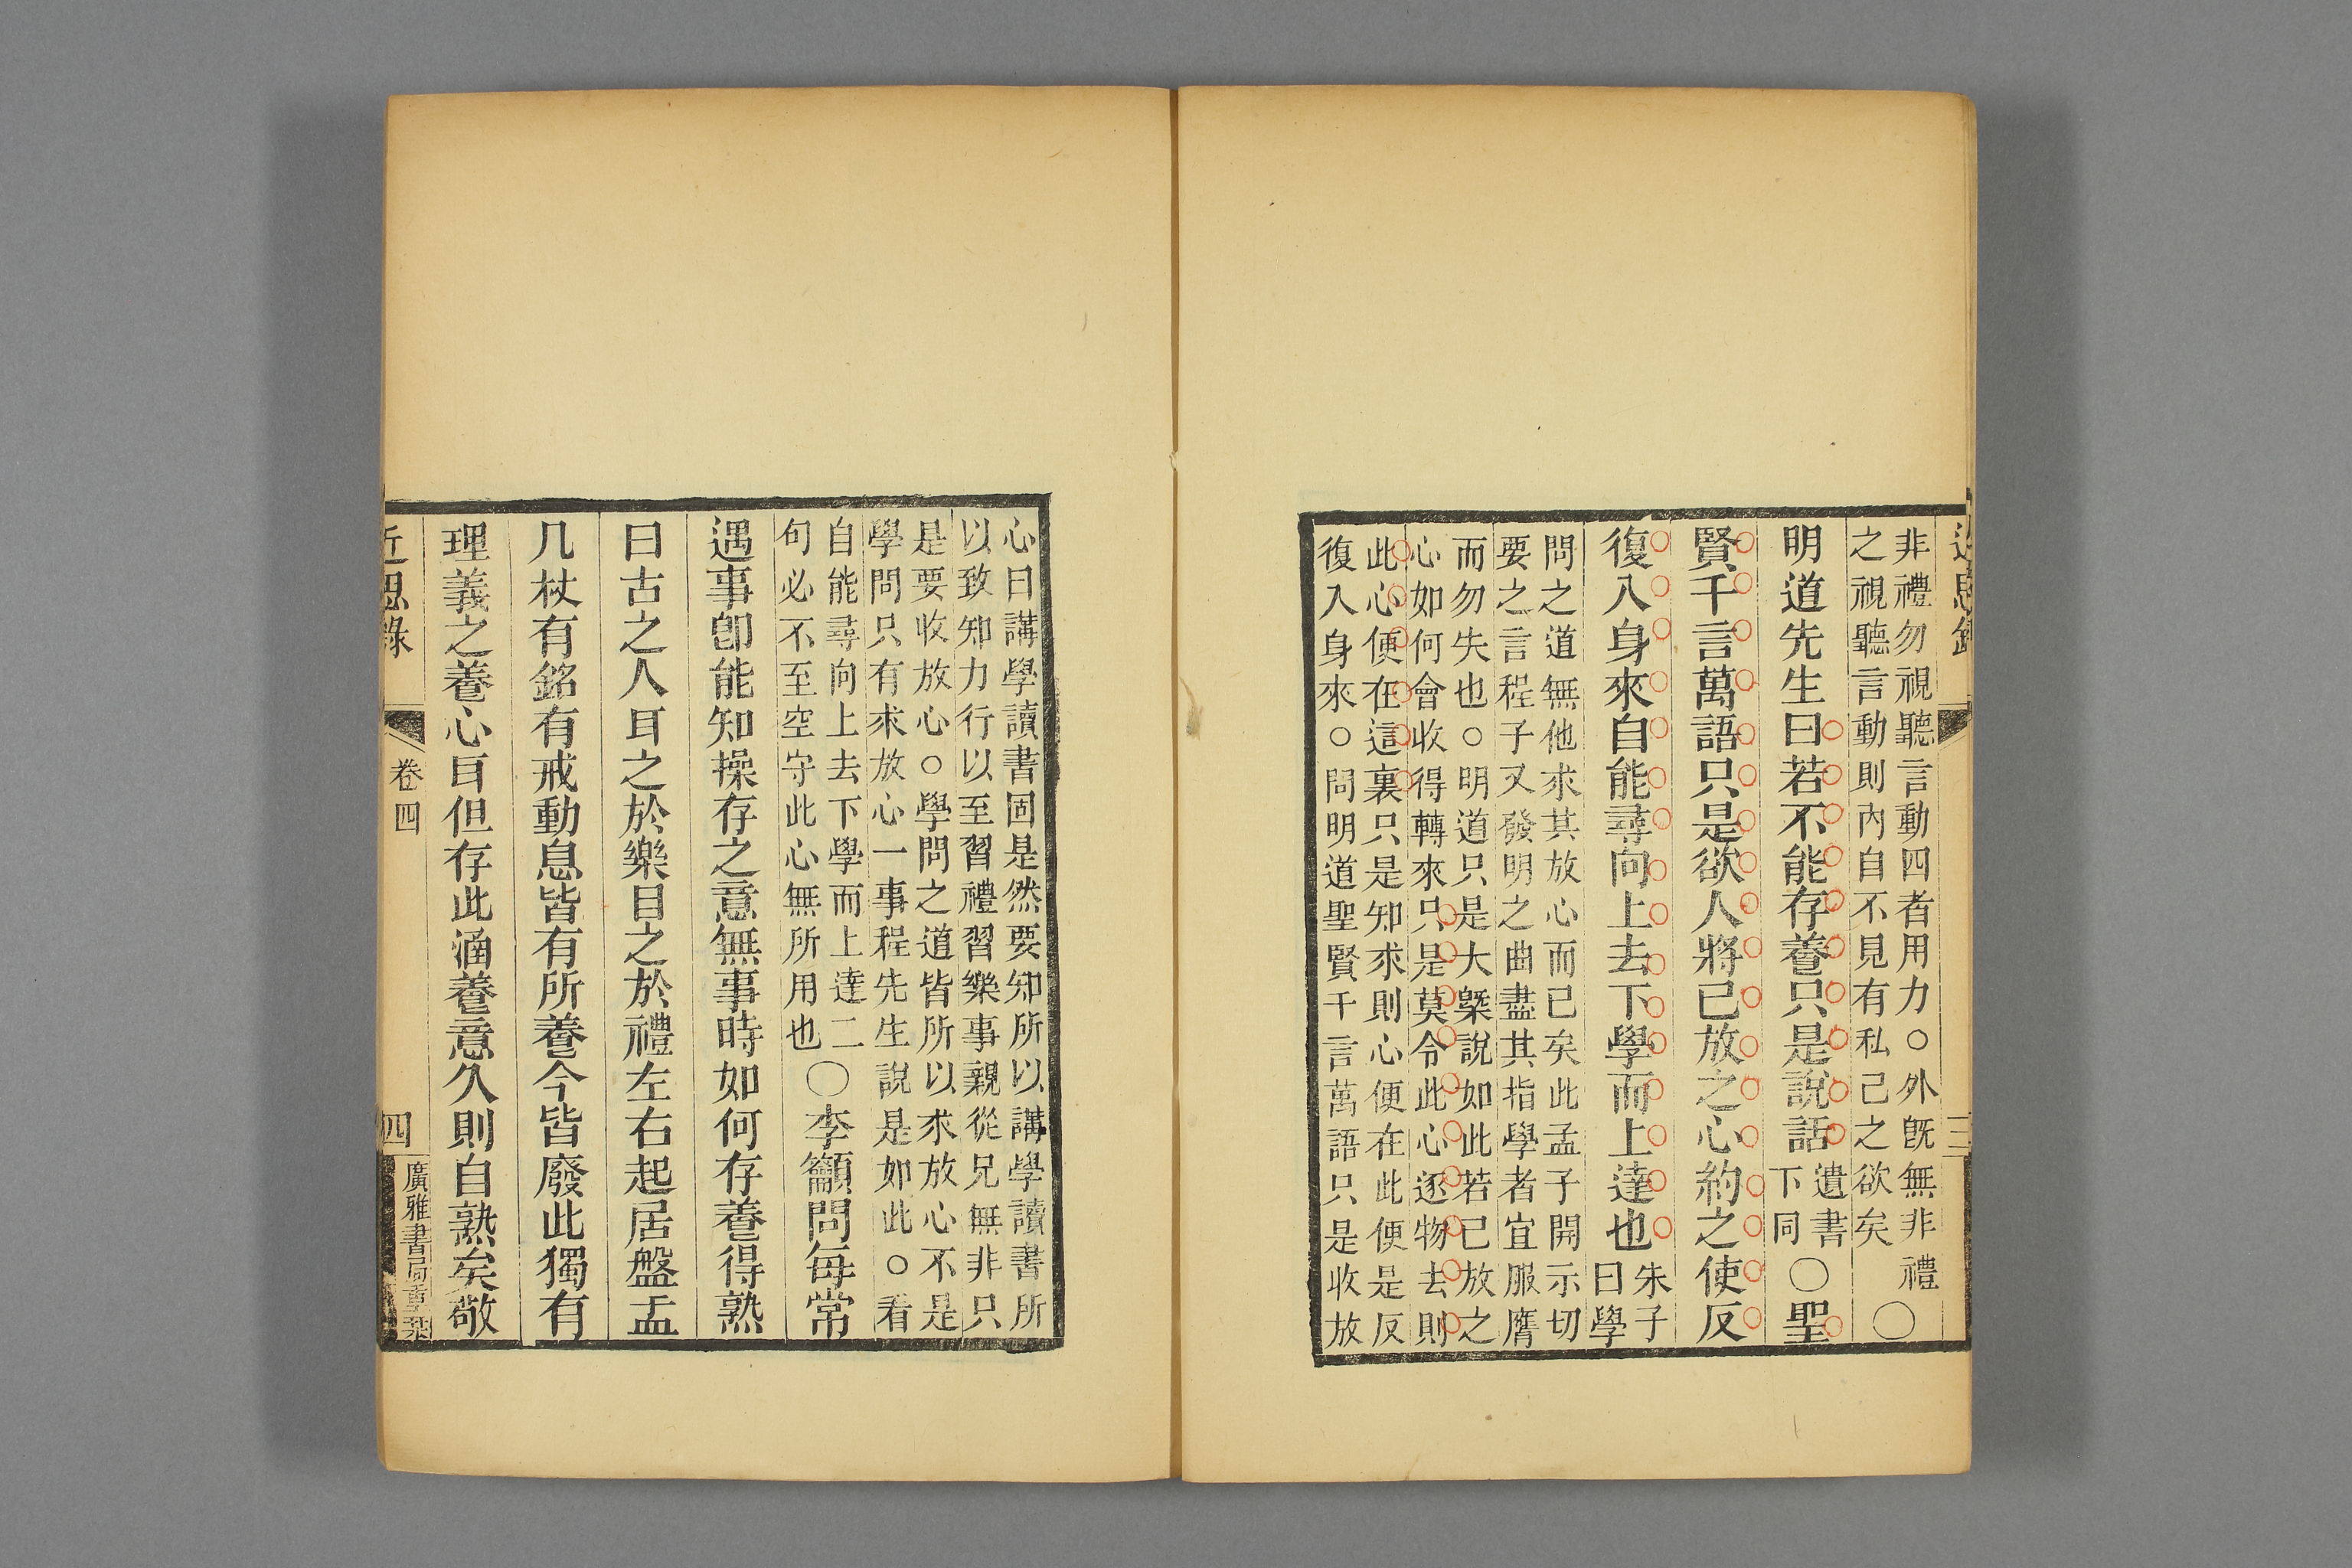 近思錄
三
非禮勿視聽言動四者用力○外旣無非禮
之視聽言動則內自不見有私己之欲矣
○
明道先生曰若不能存養只是說話
遺書
下同
○聖
賢千言萬語只是欲人將已放之心約之使反
復入身來自能尋向上去下學而上達也
朱子
曰學
問之道無他求其放心而已矣此孟子開示切
要之言程子又發明之曲盡其指學者宜服膺
而勿失也○明道只是大槩說如此若已放之
心如何會收得轉來只是莫令此心逐物去則
此心便在這裏只是知求則心便在此便是反
復入身來○問明道聖賢千言萬語只是收放
心曰講學讀書固是然要知所以講學讀書所
以致知力行以至習禮習樂事親從兄無非只
是要收放心○學問之道皆所以求放心不是
學問只有求放心一事程先生說是如此○看
自能尋向上去下學而上達二
句必不至空守此心無所用也
○李籲問每常
遇事卽能知操存之意無事時如何存養得熟
曰古之人耳之於樂目之於禮左右起居盤盂
几杖有銘有戒動息皆有所養今皆廢此獨有
理義之養心耳但存此涵養意久則自熟矣敬
近思錄
卷四
四
廣雅書局重栞